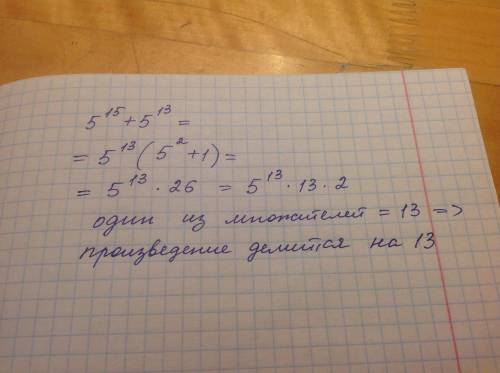 5¹⁵ + 5¹³ =
= 5¹³ (5² + 1) =
= 5¹³ · 26 = 5¹³ · 13 · 2
один из множителей = 13 =>
произведение делится на 13